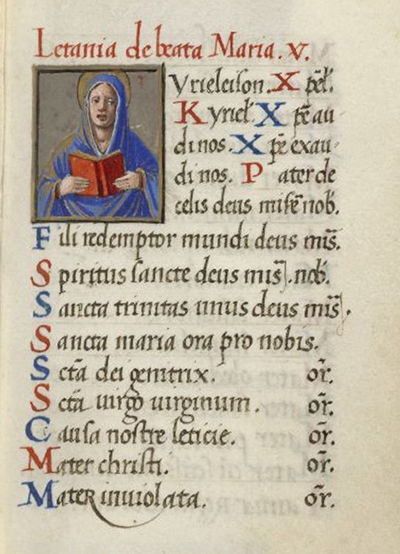 Letania de beata Maria. v.
yrieleison. X p̄el'.
Kyriel. X p̄e au
di nos. X p̄e exau-
di nos. Pater de
celis deus miserē nob.
Fili redemptor mundi deus mis̄.
Spiritus sancte deus mis̄. nob.
Sancta trinitas unus deus mis̄.
Sancta maria ora pro nobis.
Sctā dei genitrix. ōr.
Sctā uirgo uirginum. ōr.
Causa nostre leticie. ōr.
Mater christi. ōr.
Mater inuiolata. ōr.